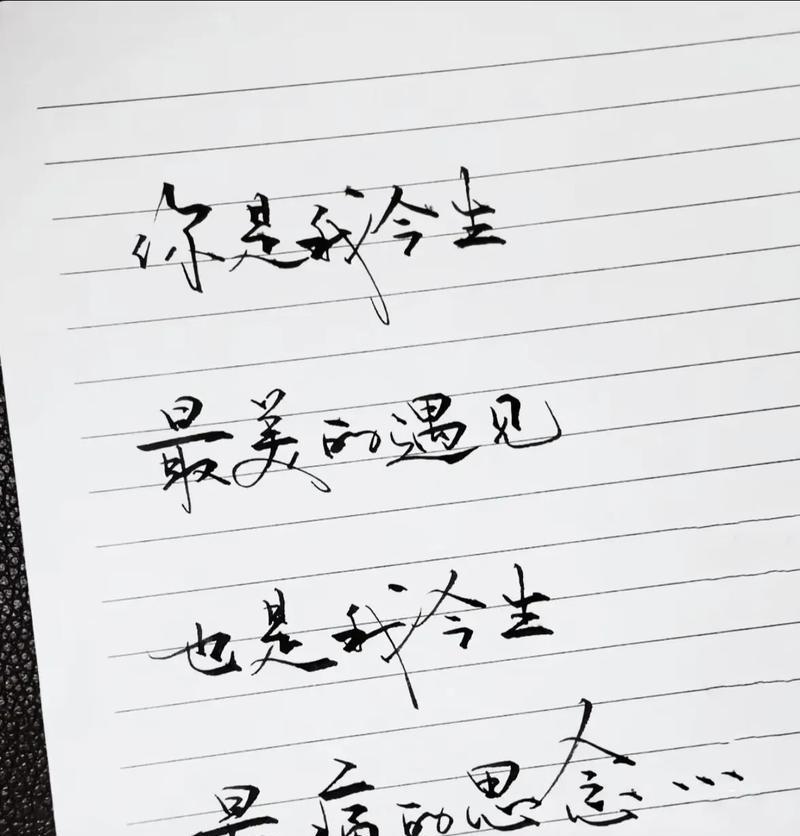 你是我今生
最美的遇见
也是我今生
最痛的思念…